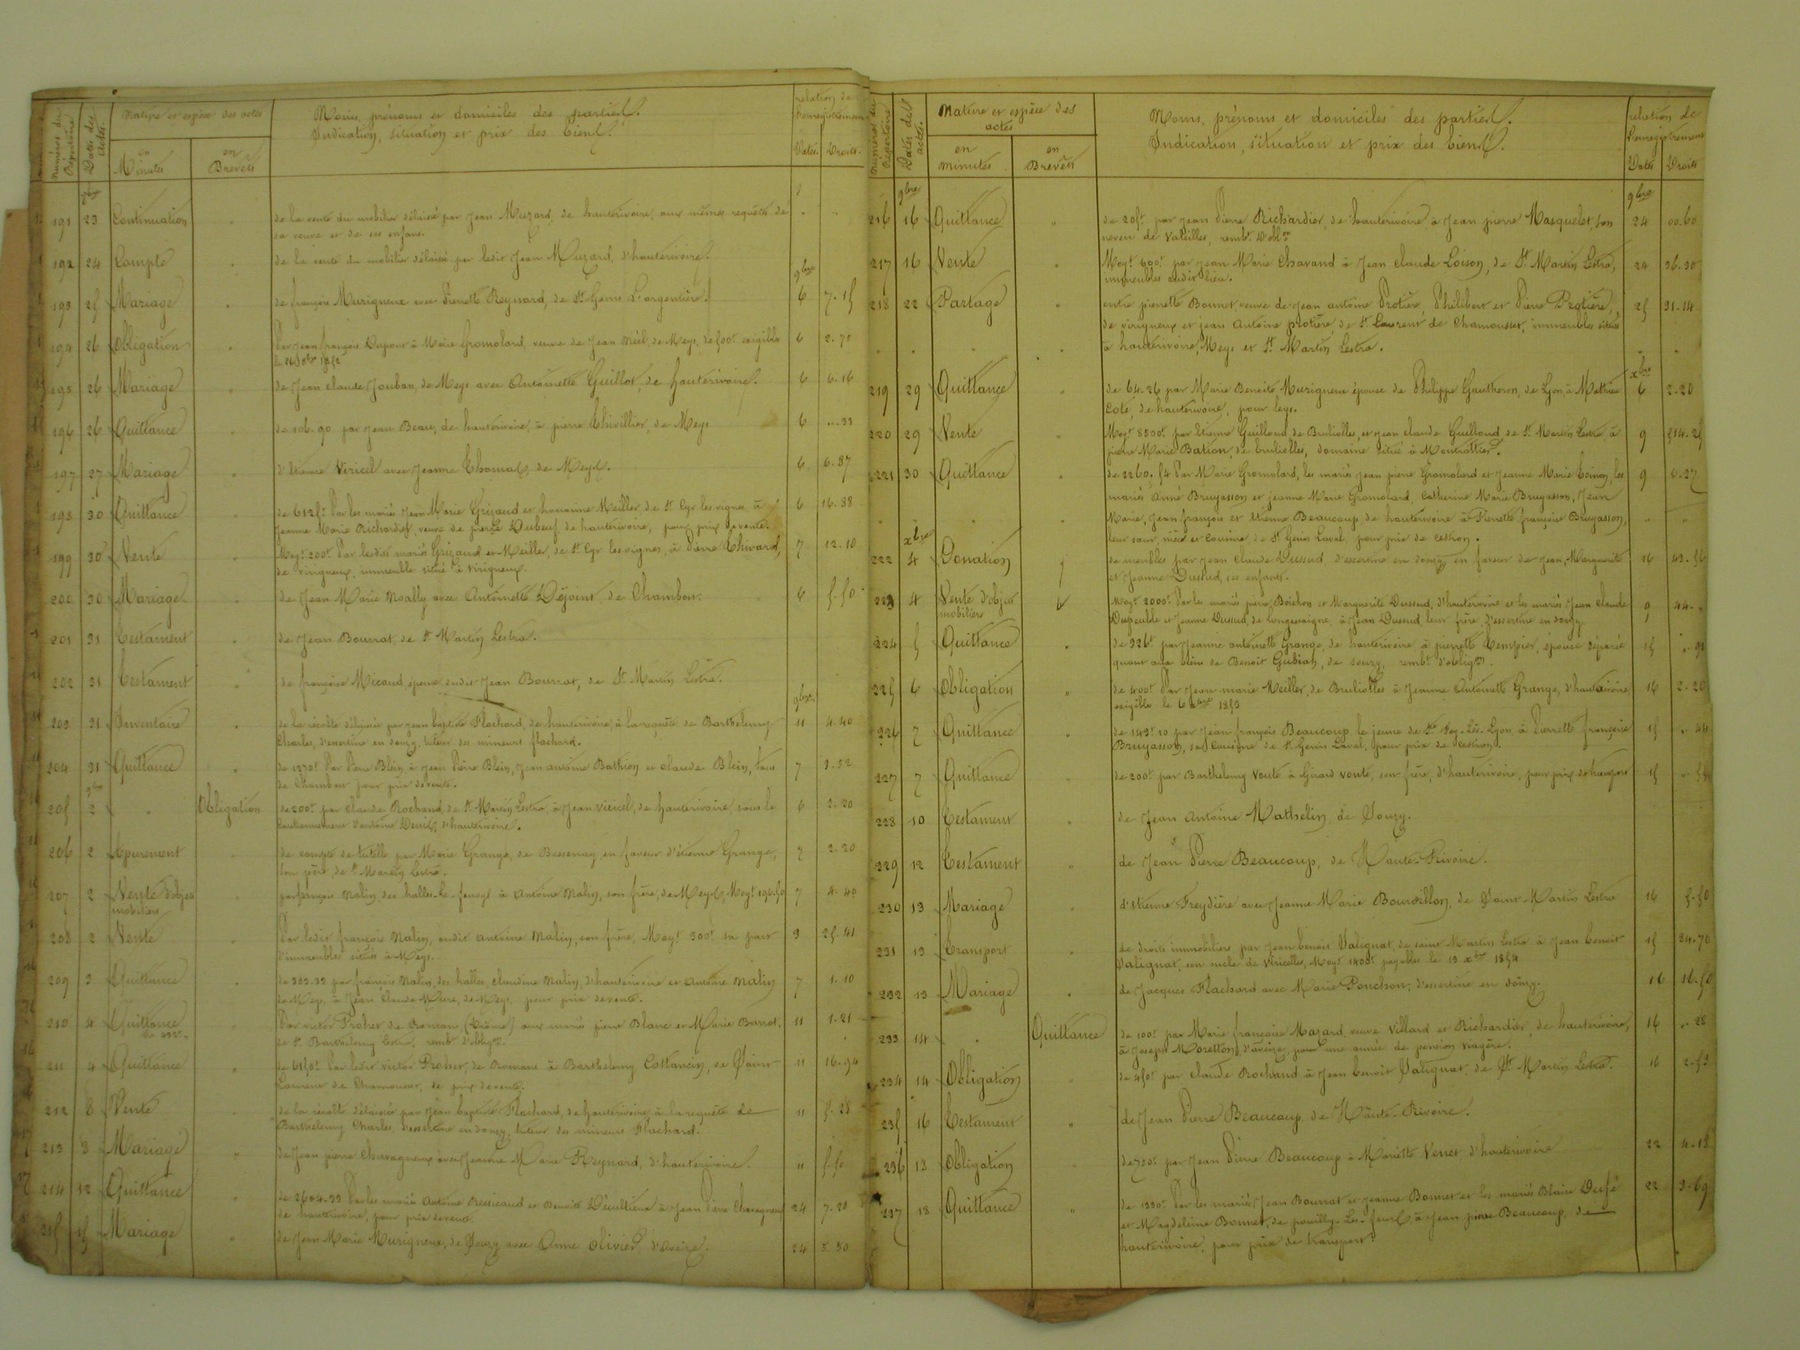 Numéros du Répertoire
Dates des Actes
Nature et espèce des actes
en Minutes
en Brevets
Noms, prénoms et domiciles des parties.
Indication, situation et prix des biens.
relation de l'enregistrement
Dates. Droits.
191 23 Continuation de la vente du mobilier délaissé par Jean Muzard, de hauterivoire, aux mêmes requêtes de
sa veuve et de ses enfans.
192 24 Compte de la vente du mobilier délaissé par ledit Jean Muzard, d'hauterivoire.
9bre
193 25 Mariage de françois Murigneux avec Pierrette Reynard, de St Genis L'argentière. 6 7.15
194 26 Obligation Par Jean françois Dupont à Marie Gromolard, veuve de Jean de Meys, de 500f exigible 6 2.75
195 26 Mariage de Jean Claude Jouban, de Meys avec Antoinette Guillot, de hauterivoire. 6 6.16
196 26 Quittance de 106.90 par Jean Beau, de hauterivoire, à pierre Thivillier, de Meys 6 ...33
197 27 Mariage d'Etienne Viricel avec Jeanne Thomas, de Meys. 6 6.87
198 30 Quittance de 612f. Par les mariés Jean Marie Grizaud et Meiller, de St Cyr les vignes, à 6 16.38
Jeanne Marie Richardier, veuve de pierre Dubeuf de hauterivoire, pour prix de vente.
199 30 Vente Moyt 200f. Par lesdits mariés Grizaud et Meiller, de St Cyr les vignes, à Pierre Thivard, 7 12.10
de Virigneux, immeuble situé à Virigneux.
200 30 Mariage de Jean Marie Noally avec Antoinette Dejoint, de Chambost. 6 5.50
201 31 Testament de Jean Bourrat, de St Martin Lestra.
202 31 Testament de françoise Micaud, épouse dudit Jean Bourrat, de St Martin Lestra.
9bre
203 31 Inventaire de la récolte délaissée par jean baptiste Flachard, de hauterivoire, à la requête de Barthelemy 11 4.40
Charles, d'essertine en donzy, tuteur des mineurs flachard.
204 31 Quittance Par Pierre Blein à Jean Pierre Blein, Jean antoine Bathion et Claude Blein, tous 7 3.52
de Chambost pour prix de vente.
9bre
205 2 Obligation de 200f. par Claude Rochand, de St Martin Lestra, à Jean Viricel, de hauterivoire, sous le 6 2.20
cautionnement d'antoine d'hauterivoire.
206 2 Apurement de compte de tutelle par Marie Grange, de Bessenay en faveur d'étienne Grange, 7 2.20
son père, de St Martin Lestra.
207 2 Vente d'objets mobiliers par françois Malin, des halles le fenoyl à Antoine Malin, son frère, de Meys, Moyt 7 4.40
208 2 Vente Par ledit françois Malin, audit Antoine Malin, son frère, Moyt 300f. sa part 9 25.41
d'immeubles situés à Meys.
209 3 Quittance de 333.33 par françois Malin, des halles, claudine Malin, d'hauterivoire et Antoine Malin 7 1.10
de Meys, à Jean Claude de Meys, pour prix de vente.
210 4 Quittance Par victor Proher de Romans (Drôme) aux mariés pierre Blanc et Marie Bonnet, 11 1.21
de St Barthelemy Lestra, rembt d'obligon.
211 4 Quittance de 615f. Par ledit victor Proher, de Romans à Barthelemy Cottancin, de Saint 11 16.94
Laurent de Chamousset, de prix de vente.
212 8 Vente de la récolte délaissée par Jean baptiste Flachard, de hauterivoire, à la requête de 11 5.28
Barthelemy Charles, d'essertine en donzy, tuteur des mineurs Flachard.
213 8 Mariage de Jean pierre Chavagneux avec Jeanne Marie Reynard, d'hauterivoire. 11 5.50
214 12 Quittance de 2604.33 Par les mariés Antoine et Benoite à Jean Pierre Chavagneux 24 7.20
de hauterivoire, pour prix de vente.
215 15 Mariage de Jean Marie Murigneux, de Souzy avec Anne Olivier, d'aveize. 24 5.50
Numéros du Répertoire
Dates des actes.
Nature et espèce des actes
en minutes
en Brevets
Noms, prénoms et domiciles des parties.
Indication, situation et prix des biens.
relation de l'enregistrement
Dates Droits
9bre 9bre
216 16 Quittance par Jean Pierre Richardier, de hauterivoire à Jean pierre Masquelet, son 24 00.60
neveu de Valeilles, rembt d'oblon
217 16 Vente Moyt 600f. par Jean Marie Chavand à Jean Claude Loison, de St Martin Lestra, 24 36.30
immeubles audit lieu.
218 22 Partage entre pierrette Bonnet veuve de Jean antoine Protière, Philibert et Pierre Protière, 25 31.14
de virigneux et jean Antoine protière, de St Laurent de Chamousset, immeubles situés
à hauterivoire, Meys et St Martin Lestra.
xbre
219 29 Quittance de 64.26 par Marie Benoite Murigneux épouse de Philippe Gautheron, de Lyon à Mathieu 6 2.20
Cote, de hauterivoire, pour legs.
220 29 Vente Moyt 8500f. par Etienne Guilloud de Brullioles, et jean claude Guilloud de St Martin Lestra à 9 514.25
pierre Marie Bation, de brullioles, domaine situé à Montrottier.
221 30 Quittance de 2260.54 Par Marie Gromolard, les mariés Jean pierre Gromolard et Jeanne Marie Coinon, les 9 6.27
mariés Anne Bruyasson et jeanne Marie Gromolard, Catherine Marie Bruyasson, Jean
Marie, Jean françois et Etienne Beaucoup de hauterivoire à Pierrette françoise Bruyasson,
leur sœur, nièce et cousine, de St Genis Laval, pour prix de cession.
xbre
222 4 Donation de meubles par Jean Claude Dussud d'essertine en donzy, en faveur de Jean, Marguerite 16 43.56
et Jeanne Dussud, ses enfants.
223 4 Vente d'objets mobiliers Moyt 2000f. Par les mariés pierre Boichon et Marguerite Dussud, d'hauterivoire et les mariés Jean Claude 9 44..
Dupeuble et Jeanne Dussud, de longessaigne, à Jean Dussud leur frère, d'essertine en donzy.
224 5 Quittance de 326f par Jeanne antoinette Grange, de hauterivoire à pierrette Tempier, épouse séparée 15 ..91
quant aux biens de Benoit de Souzy, rembt d'obligon.
225 6 Obligation de 400f. Par Jean marie Meiller, de Brullioles à Jeanne Antoinette Grange, d'hauterivoire, 16 2.20
exigible le 6 xbre 1853
226 7 Quittance de 143f.10 par Jean françois Beaucoup le jeune de Ste Foy-les-Lyon, à Pierrette françoise 15 ..44
Bruyasson, sa cousine de St Genis Laval, pour prix de cession.
227 7 Quittance de 200f par Barthelemy Vouté à Girard vouté, son frère, d'hauterivoire, pour prix de transport 15
228 10 Testament de Jean Antoine Mathelin, de Souzy.
229 12 Testament de Jean Pierre Beaucoup, de Haute-Rivoire.
230 13 Mariage d'Etienne Freydière avec Jeanne Marie Bourdillon, de Saint Martin Lestra 16 5.50
231 13 Transport de droits immobiliers par Jean benoit Valignat, de saint Martin Lestra à Jean benoit 15 34.70
Valignat, son oncle de Viricelles, Moyt 1400f. payables le 13 xbre 1854
232 13 Mariage de Jacques Flachard avec Marie Ponchon, d'essertine en donzy. 16 16.50
233 14 Quittance de 100f. par Marie françoise Mazard, veuve Villard et Richardier, de hauterivoire, 16 ..28
à Joseph Moretton, d'aveize, pour une année de pension viagère.
234 14 Obligation de 450f. par Claude Rochand à Jean benoit Valignat, de St Martin Lestra. 16 2.53
235 16 Testament de Jean Pierre Beaucoup, de Haute-Rivoire.
236 18 Obligation de 750f. par Jean Pierre Beaucoup à Mariette Venet d'hauterivoire 22 4.12
237 18 Quittance de 1330f. Par les mariés Jean Bourrat et Jeanne Bonnet et les mariés Blaise 22 3.69
et Magdeleine Bonnet, de pouilly-les-feurs à Jean pierre Beaucoup, de
hauterivoire, pour prix de transport